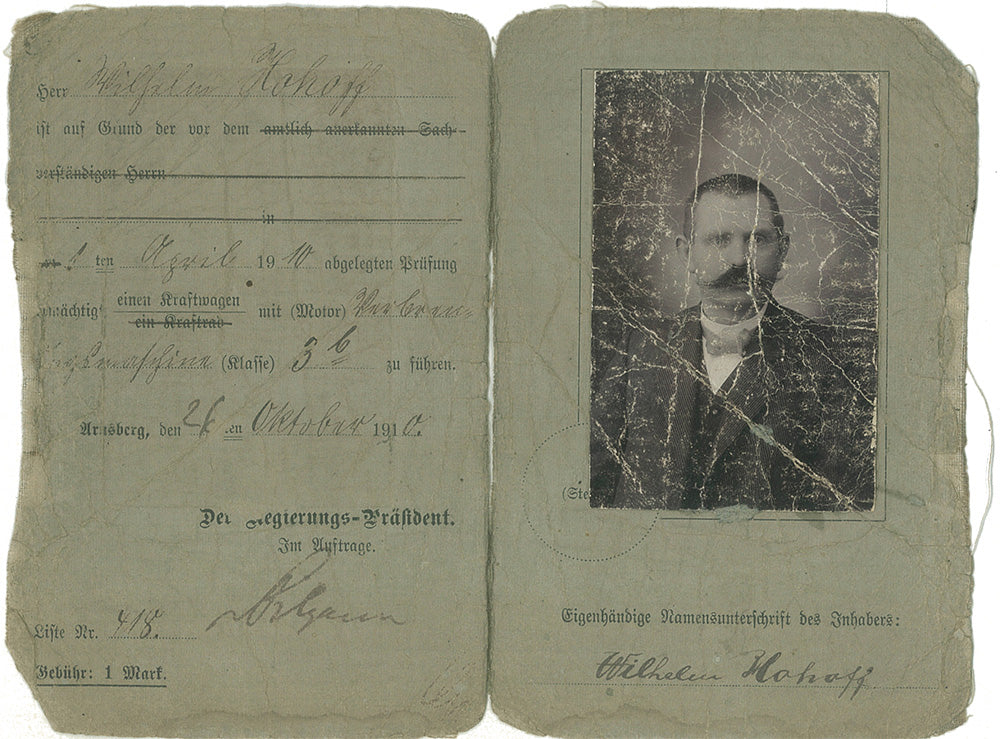 Herr Wilhelm Hohoff
ist auf Grund der vor dem amtlich anerkannten Sach-
verständigen Herrn
in
ten April 1910 abgelegten Prüfung
mächtig einen Kraftwagen
ein Kraftrad
mit (Motor) Verbren-
maschine (Klasse) 3b zu führen.
Arnsberg, den 26 ten Oktober 1910.
Der Regierungs-Präsident.
Im Auftrage.
Liste Nr. 418.
Gebühr: 1 Mark.
(Ste
Eigenhändige Namensunterschrift des Inhabers:
Wilhelm Hohoff